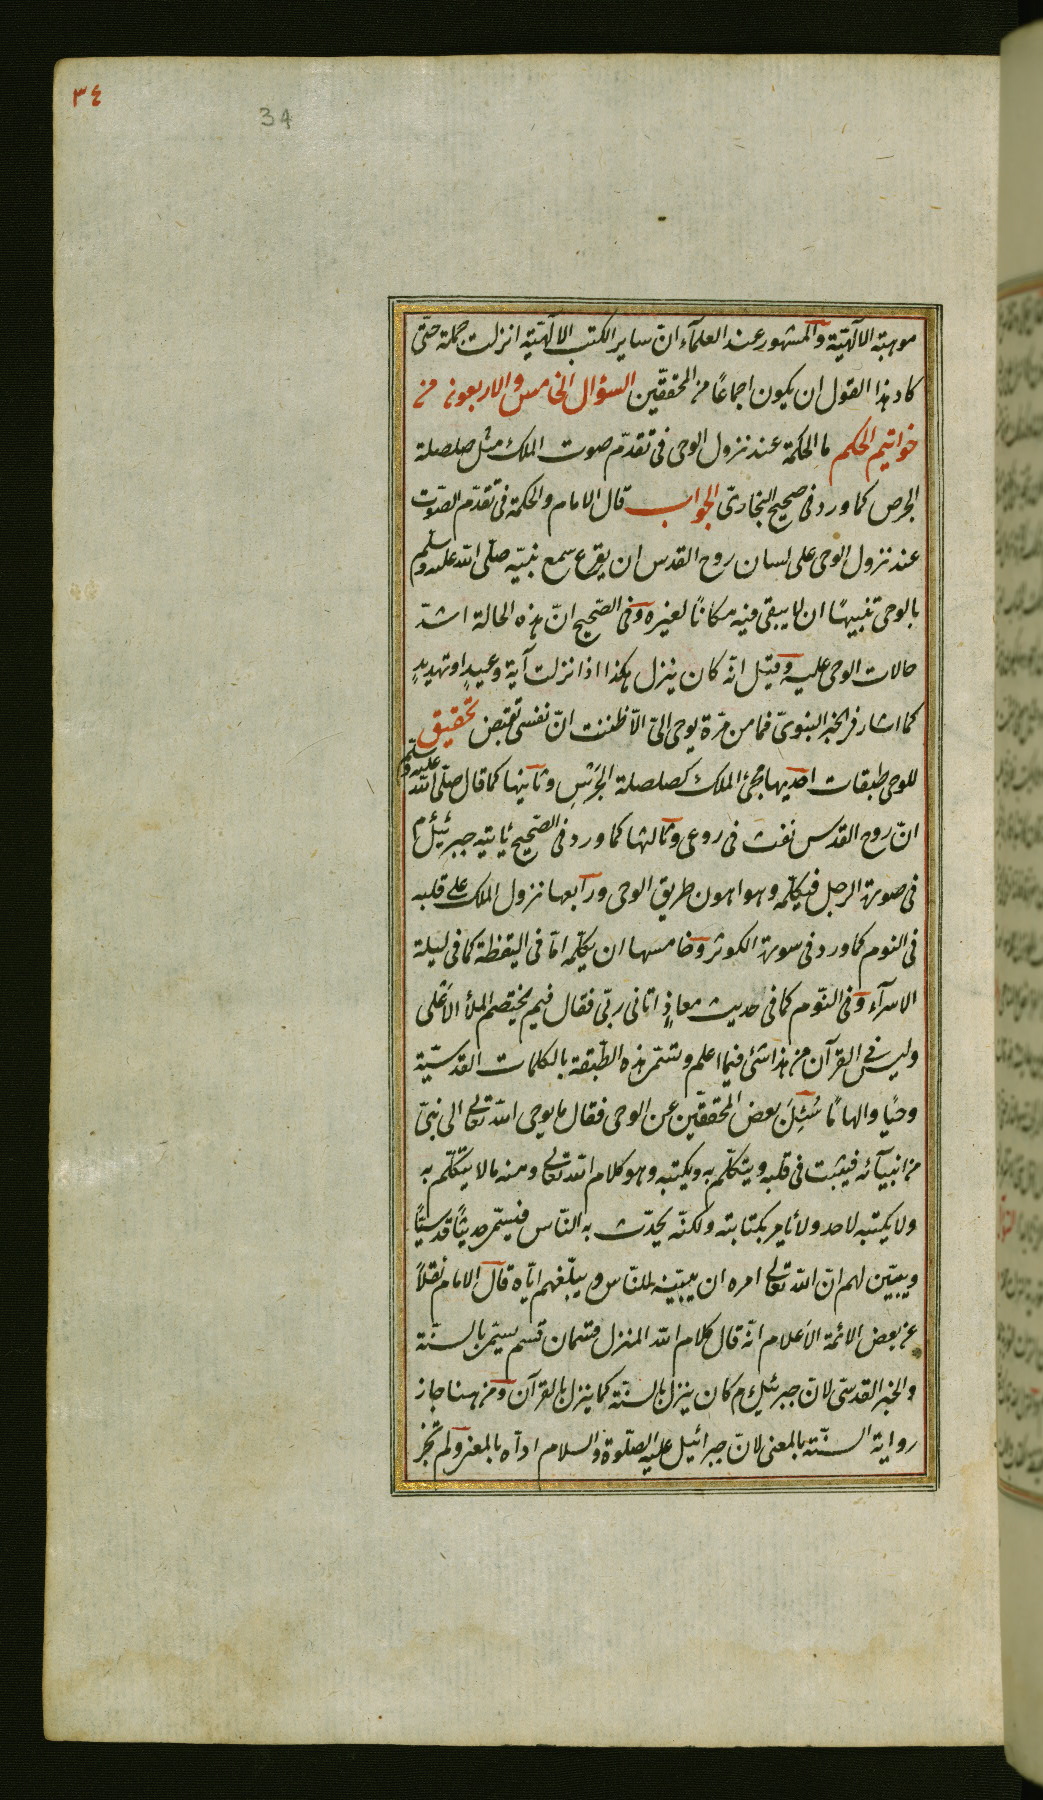 ٣٤
34
موهبته الالٓهيّة والمشهور عند العلمآء انّ ساير الكتب الالٓهيّة انزلت جملة حتّى
كاد هذا القول ان يكون اجماعًا من المحققّين السؤال الخامس والاربعون من
خواتيم الحكم ما الحكمة عند نزول الوحى فى تقدّم صوت الملك مثل صلصلة
الجرص كما ورد فى صحيح البخارىّ الجواب قال الامام والحكمة فى تقدّم الصّوت
عند نزول الوحى على لسان روح القدس ان يقرع سمع نبيّه صلّى الله عليه وسلّم
بالوحى تنبيهًا ان لا يبقى فيه مكانًا لغيره وفى الصّحيح انّ هذه الحالة اشدّ
حالات الوحى عليه وقيل انّه كان ينزل هكذا اذا نزلت آية وعيدٍ او تهديدٍ
كما اشار فى الخبر النبوىّ فما من مرّة يوحى الىّ الّا ظننت انّ نفسى تقبض تحقيق
للوحى طبقات احديها مجئ الملك كصلصلة الجَرَسِ وثانيها كما قال صلّى الله عليه وسلّم
انّ روح القدس نفث فى روعى وثالثها كما ورد فى الصّحيح يأتيه جبرئيل م
فى صورة الرجل فيكلّمه وهو اهون طريق الوحى ورابعها نزول الملك على قلبه
فى النوم كما ورد فى سورة الكوثر وخامسها ان يكلّمه امّا فى اليقظة كما فى ليلة
الاسرآء وفى النّوم كما فى حديث معاذٍ اتانى ربّى فقال فيم يختصم الملأ الاعلى
وليس فى القرآن من هذا شئ فيما اعلم وتسّمى هذه الطّبقة بالكلمات القدسيّة
وحيًا والهامًا سُئِلَ بعض المحققّين عن الوحى فقال ما يوحى الله تعالى الى نبىّ
من انبيآئه فيثبت فى قلبه ويتكلّم به ويكتبه وهو كلام الله تعالى ومنه ما لا يتكلّم به
ولا يكتبه لاحد ولا يأمر بكتابته ولكنّه يحدّث به النّاس فيسمّى حديثًا قدسيًّا
ويبيّن لهم انّ الله تعالى امره ان يبيّنه للنّاس ويبلّغهم ايّاه قال الامام نقلًا
عن بعض الائمة الاعلام انّه قال كلام الله المنزل قسمان قسم يسمّى بالسنّة
والخبر القدسى لانّ جبرئيل م كان ينزل بالسنّة كما ينزل بالقرآن ومن هنا جاز
رواية السنّة بالمعنى لانّ جبرائيل عليه الصّلوة والسلام ادآه بالمعنى ولم تجز